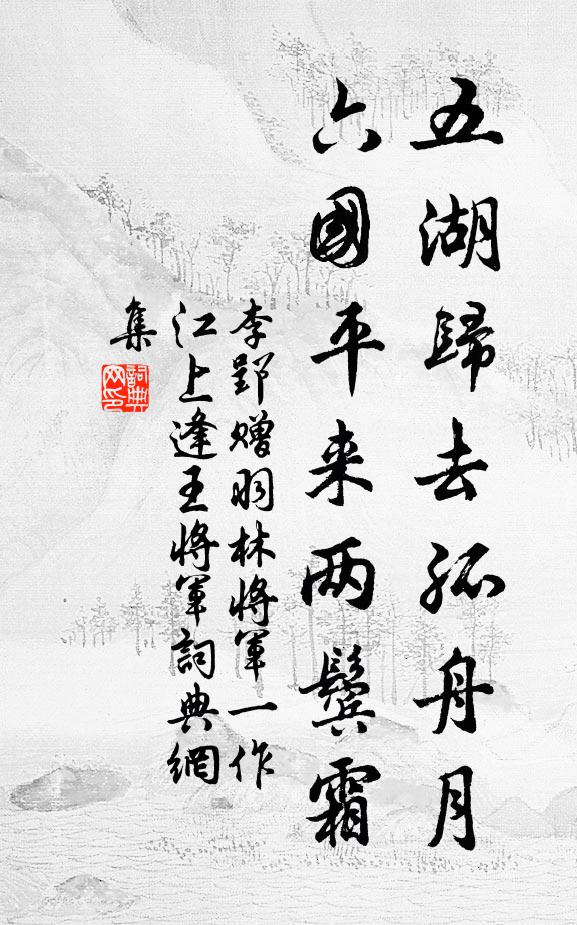 五湖歸去孤舟月
六國平来两鬓霜
李郢赠羽林將軍一作
江上逢王將軍詞典網
集
詞典
网印